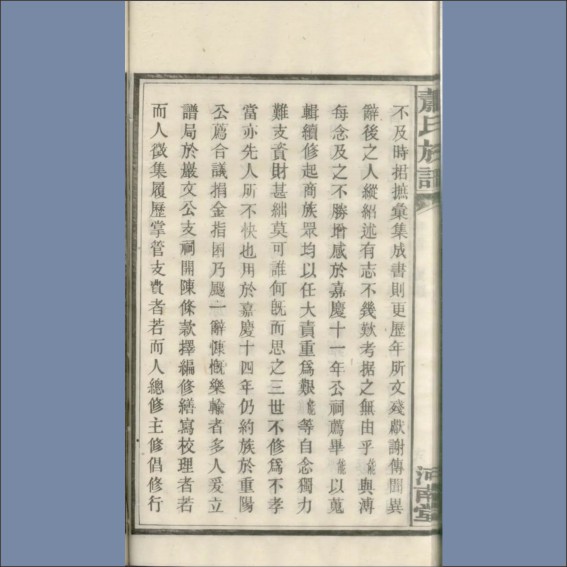 蕭氏族譜
河南堂
不及時捃摭彙集成書則更歷年所文殘獻謝傳聞異
辭後之人縱紹述有志不幾歎考据之無由乎能與溥
每念及之不勝增感於嘉慶十一年公祠薦畢能以蒐
輯續修起商族眾均以任大責重爲艱能等自念獨力
難支資財甚絀莫可誰何旣而思之三世不修爲不孝
當亦先人所不快也用於嘉慶十四年仍約族於重陽
公薦合議捐金指囷乃颺一辭慷慨樂輸者多人爰立
譜局於嚴文公支祠開陳條款擇編修繕寫校理者若
而人徵集履歷掌管支費者若而人總修主修倡修行